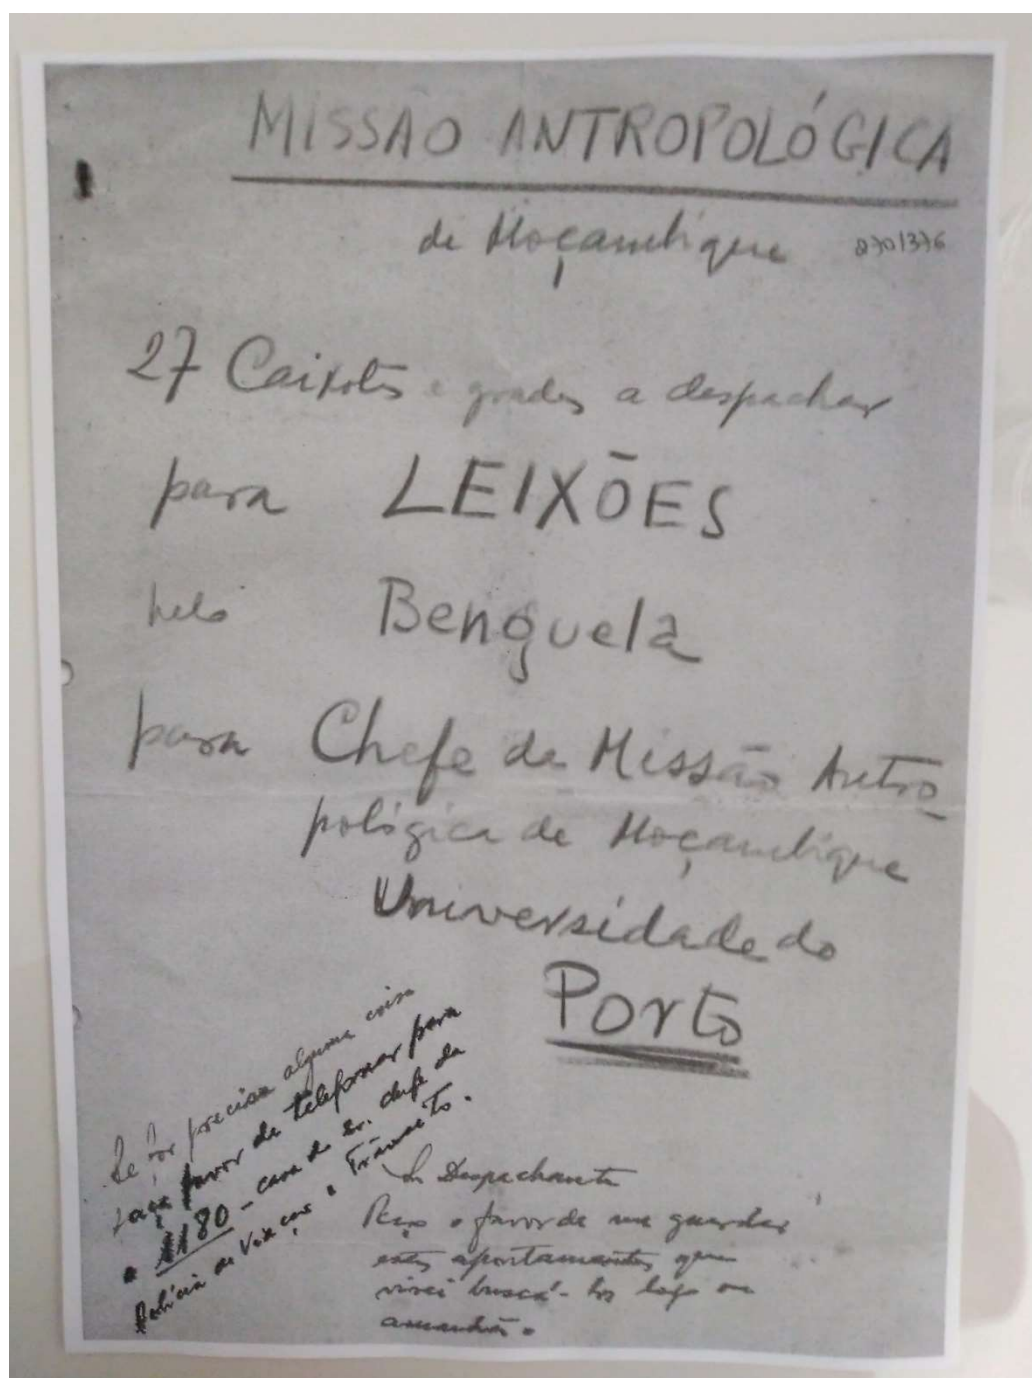 MISSÃO ANTROPOLÓGICA
de Moçambique
27 Caixotes e grades a despachar
para LEIXÕES
pelo Benguela
para Chefe da Missão Antro
pológica de Moçambique
Universidade do
Porto
Se for precisa alguma coisa
faça favor de telefonar para
o 80 - casa do Sr. chefe da
Polícia de Viação e Trânsito.
Sr. Despachante
Peço o favor de me guardar
estes apontamentos que
virei buscá-los logo ou
amanhã.